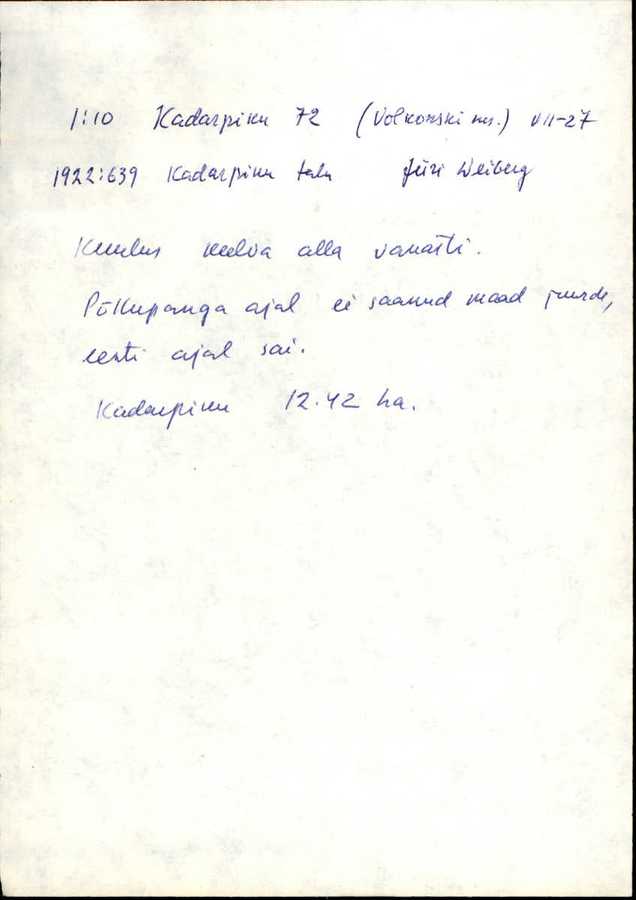 1:10 Kadarpiku 72 (Volkonski ms.) VII-27
1922:639 Kadarpiku talu Jüri Weiberg
Kuulus alla vanasti.
Põllupanga ajal ei saanud maad juurde,
eesti ajal sai.
Kadarpiku 12.42 ha.